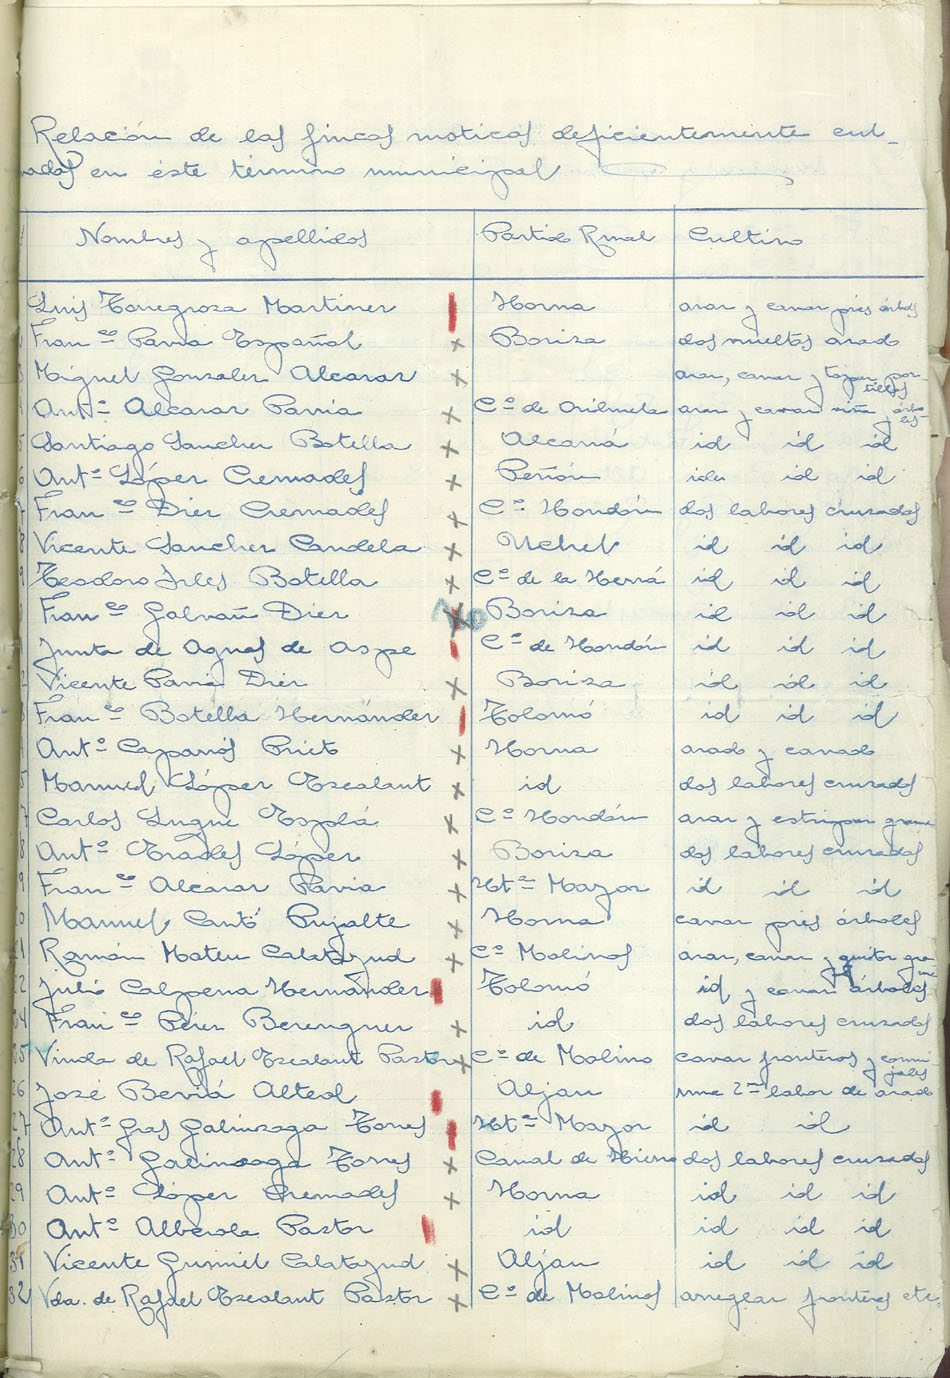 Relación de las fincas rústicas deficientemente cul-
vadas en éste término municipal
Nombres y apellidos Partido Rural Cultivo
Luis Torregroza Martinez Horna arar y cavar piés árboles
Franco Pavia Español Boriza dos vueltas arado
Miguel Gonzalez Alcaraz arar, cavar y tapar portillos
Anto Alcaraz Pavia Co de Orihuela arar y cavar viña y árboles
5 Santiago Sanchez Botella Alcaná id id id
6 Anto López Cremades Peñón idem id id
7 Franco Diez Cremades Co Hondón dos labores cruzadas
8 Vicente Sanchez Candela Uchel id id id
9 Teodoro Irles Botella Co de la id id id
Franco Galvañ Diez No Boriza id id id
Junta de Aguas de Aspe Co de Hondón id id id
2 Vicente Pavia Diez Boriza id id id
3 Franco Botella Hernández Tolomó id id id
Anto Caparrós Prieto Horna arado y cavado
Manuel López Escalant id dos labores cruzadas
7 Carlos Luque Esplá Co Hondón arar y estripar grama
8 Anto Prades López Boriza dos labores cruzadas
9 Franco Alcaraz Pavia Hta Mayor id id id
Manuel Cantó Pujalte Horna cavar piés árboles
21 Ramón Mateu Calatayud Co Molinos arar, cavar y quitar grama
22 Julio Calpena Hernández Tolomó id y cavar árboles
24 Franco Pérez Berenguer id dos labores cruzadas
25 Viuda de Rafael Escalant Pastor Co de Molino cavar fronteros y
26 José Beviá Alted Aljau una 2ª labor de arado
27 Anto Gras Galinzoga Torres Hta Mayor id id
28 Anto Galinzoga Torres Canal de Hierro dos labores cruzadas
29 Anto López Cremades Horna id id id
30 Anto Alberola Pastor id id id id
31 Vicente Gumiel Calatayud Aljau id id id
32 Vda. de Rafael Escalant Pastor Co de Molinos arreglar fronteros etc.